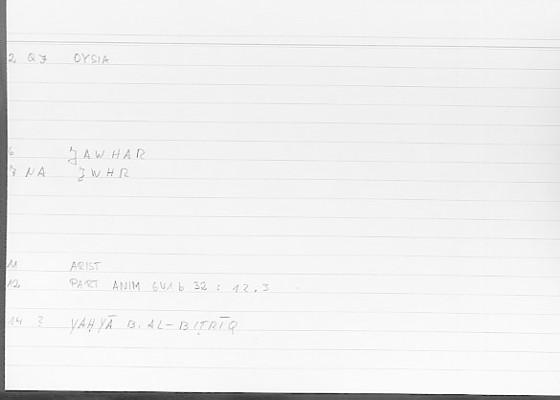 2 Q7 OYSIA
6 JAWHAR
7 NA JWHR
11 ARIST
12 PART ANIM 641 b 32 : 12.3
14 2 YAḤYĀ B. AL-BIṬRĪQ